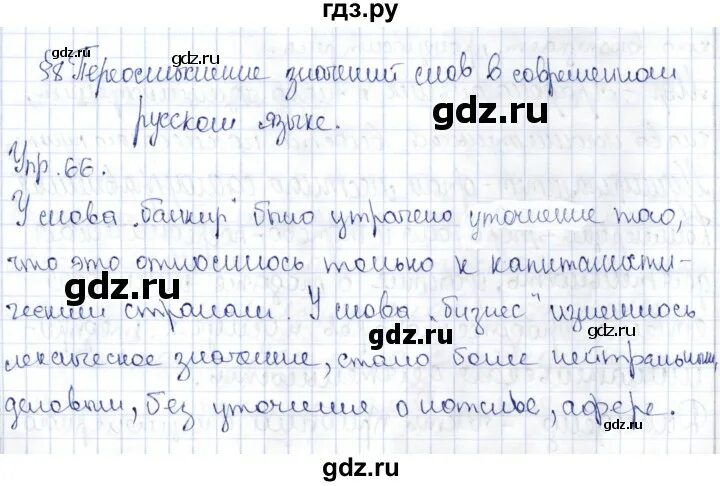 гдз.ру
§8 Переосмысление значений слов в современном
русском языке.
Упр. 66.
У слова „банкир" было утрачено уточнение того,
что это относилось только к капиталисти-
ческим странам. У слова „бизнес" изменилось
лексическое значение, стало более нейтральным,
деловым, без уточнения о наживе, афере.
gdz.ru
gdz.ru
gdz.ru
gdz.ru
gdz.ru
gdz.ru
gdz.ru
gdz.ru
gdz.ru